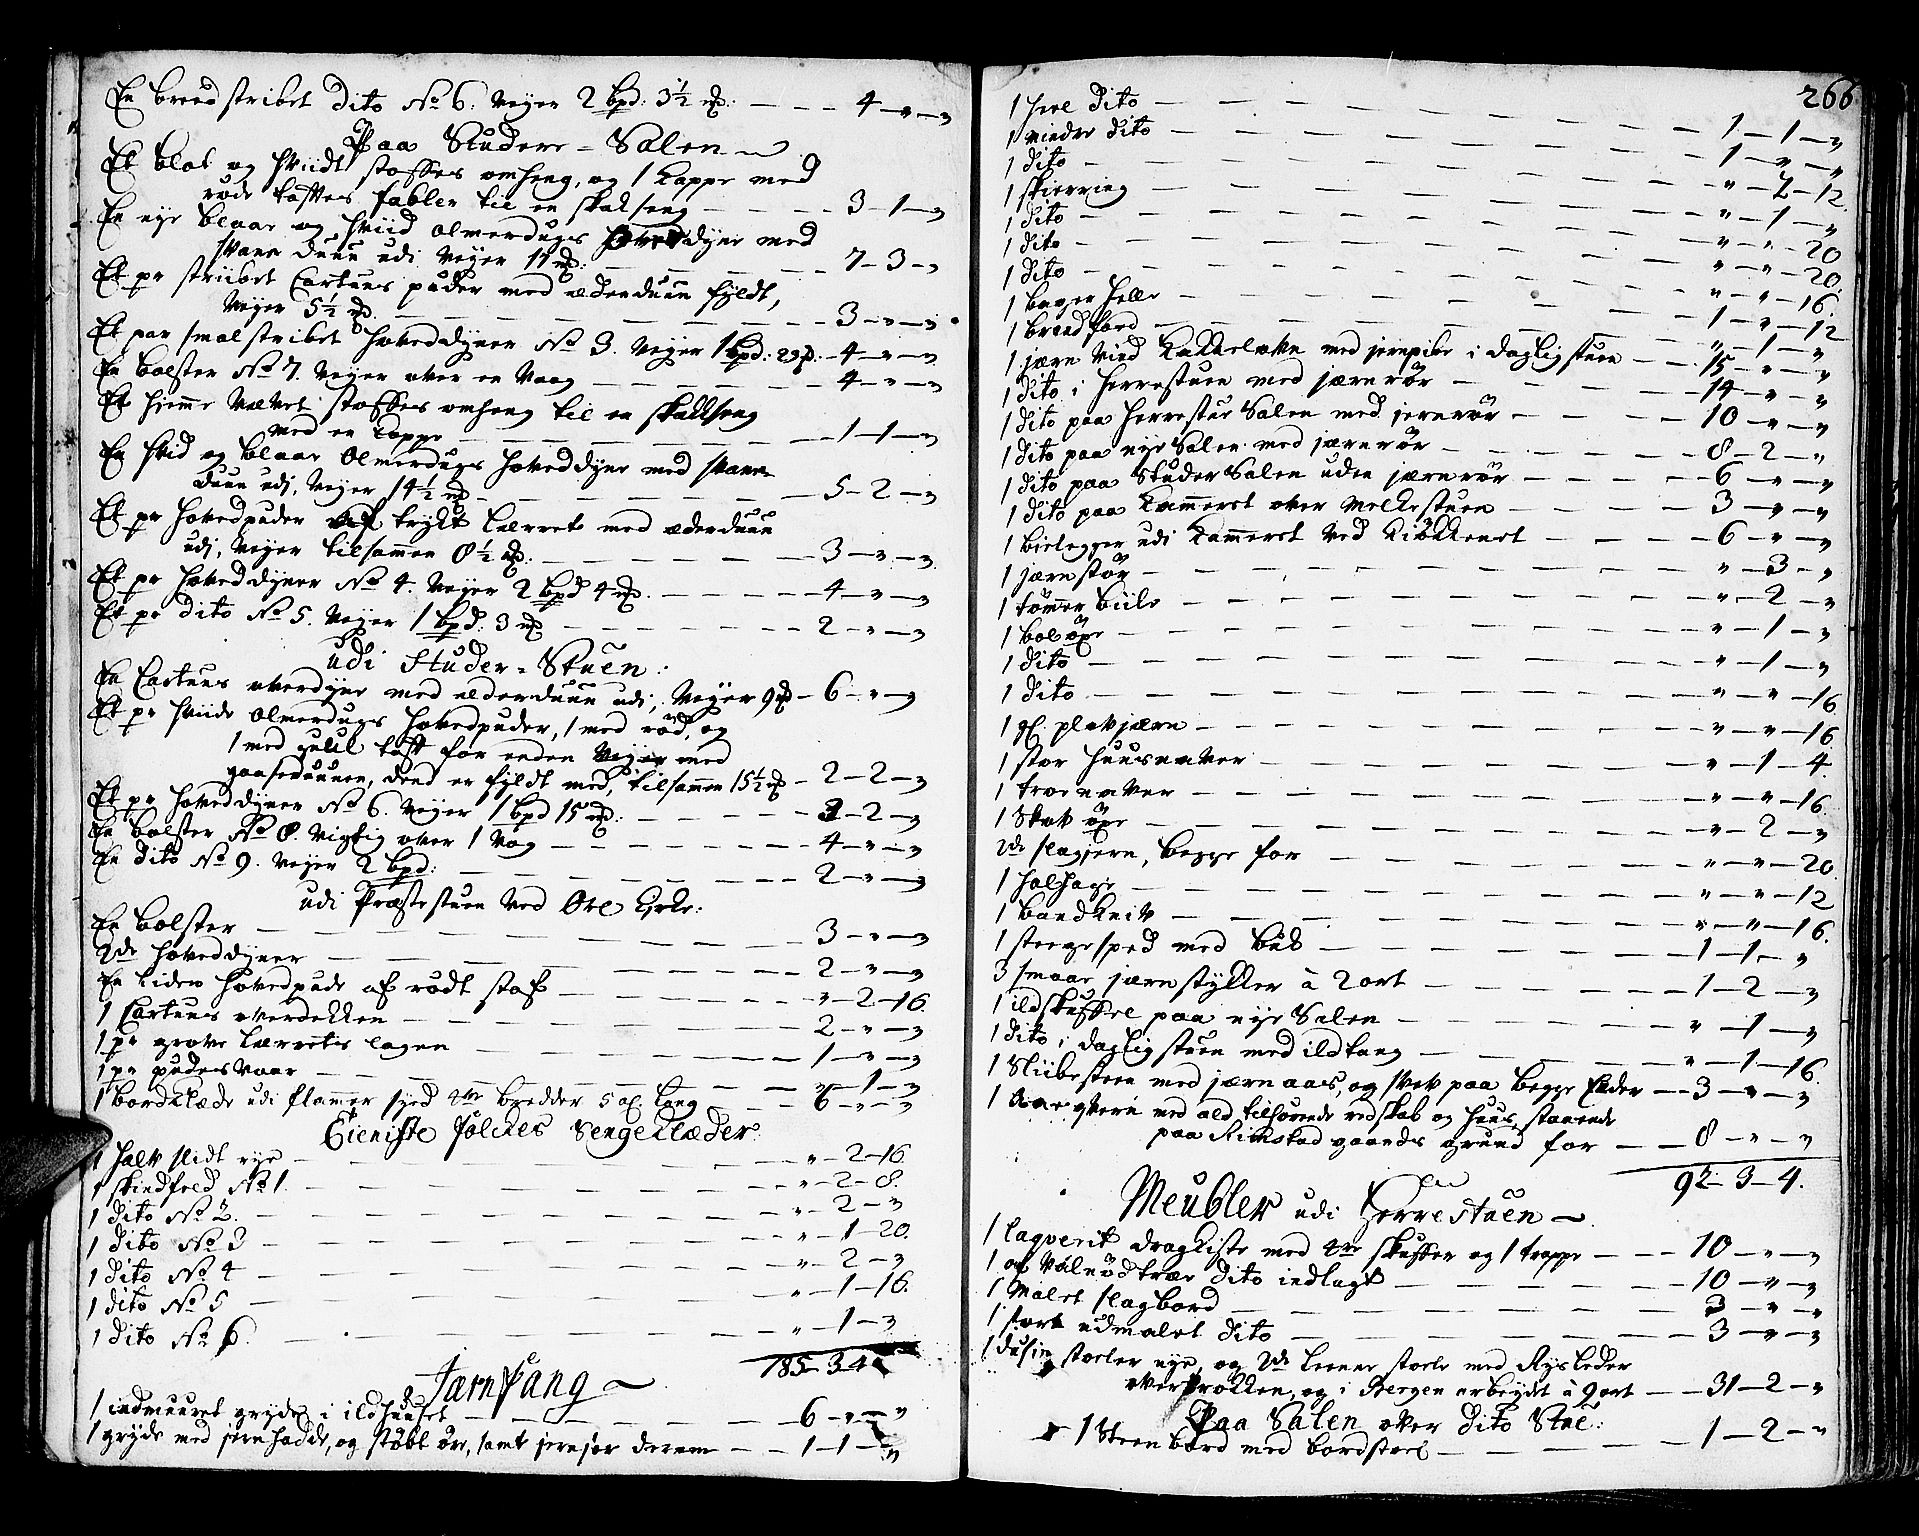 En breed stribet dito No 6. Vejer 2 bpd: 3½ – – – 4 – „ – „
Paa Studere-Salen
Et blat og hviidt stoffes omheng, og 1 Kappe med
røde taftes fabler til en skakseng – – – 3 – 1 – „
En nye blaae og hviid Olmerdugs hoveddyne med
Svane duun udi vejer – – – 7 – 3 – „
Et pr striibet Cartuns puder med ederduun fyldt,
Vejer 5½ – – – 3 – „ – „
Et par smalstribet hoveddyner No 3. Vejer 1 bpd: – 4 – „ – „
En bolster No 7. Vejer over en Vaag – – – 4 – „ – „
Et hiemme Vævet stoffes omheng til en skakseng
med en Kappe – – – 1 – 1 – „
En hvid og blaae Olmerdugs hoveddyne med svane
duun udj, Vejer 14½ – – – 5 – 2 – „
Et pr hovedpuder af trykt Lærret med æderduun
udj, Vejer tilsammen 8½ – – – 3 – „ – „
Et pr hoveddyner No 4. Vejer 2 bpd 4 – – – 4 – „ – „
Et pr dito No 5. Vejer 1 bpd: 3 – – – 2 – „ – „
udi Studer-Stuen:
En Cartuns overdyne med ederduun udj, Vejer 9 – 6 – „ – „
Et pr hviide Olmerdugs hovedpuder, 1 med rød, og
1 med guul taft for enden med
gaaseduun, dend er fyldt med, tilsammen 15½ – 2 – 2 – „
Et pr hoveddyner No 6. Vejer 1 bpd 15 – – – 3 – 2 – „
En bolster No 8. Vigtig over 1 Vog – – – 4 – „ – „
En dito No 9. Vejer 2 bpd: – – – 2 – „ – „
udi Præstestuen Ved Kirke:
En bolster – – – 3 – „ – „
2de hoveddyner – – – 2 – „ – „
En Liden hovedpude af rødt stof – – – „ – 2 – 16
1 Cartuns overdekken – – – 2 – „ – „
1 pr grove Lærrets lagen – – – 1 – „ – „
1 pr pudesvaar – – – „ – 1 – „
1 bordklæde udi flammer syed 4re bredder 5 al. lang – 6 – „ – „
Tieniste Folckes Sengeklæder
1 halv slidt rye – – – „ – 2 – 16
1 skindfeld No 1. – – – „ – 2 – 8.
1 dito No 2. – – – „ – 2 – „
1 dito No 3 – – – „ – 1 – 20.
1 dito No 4 – – – „ – 2 – „
1 dito No 5 – – – „ – 1 – 16.
1 dito No 6. – – – „ – 1 – „
185 – 3 – 4
Jærnfang
1 indmuuret gryde i ildhuuset – – – 6 – „ – „
1 gryde med jernhadde, og støbt øre, samt derom – – 1 – 1 – „
266
1 heel dito – – – 1 – 1 – „
1 mindre dito – – – 1 – „ – „
1 dito – – – „ – 2 – 12.
1 skierring – – – „ – 1 – „
1 dito – – – „ – „ – 20
1 dito – – – „ – „ – 20.
1 dito – – – „ – „ – 16.
1 bager helle – – – 1 – „ – 12
1 – – – „ – 1 – „
1 jærn Vind Kakkelovn med jernpibe i dagligstuen – – 15 – „ – „
1 dito i herrestuen med jærnrør – – – 14 – „ – „
1 dito paa herrestue Salen med jernrør – – – 10 – „ – „
1 dito paa nye Salen med jærnrør – – – 8 – 2 – „
1 dito paa Studer Salen uden jærnrør – – – 6 – „ – „
1 dito paa Kammeret over melkestuen – – – 3 – „ – „
1 bielegger udi Kammeret Ved Kiøkkenet – – – 6 – „ – „
1 jærnstør – – – „ – 3 – „
1 tømmer biile – – – „ – 2 – „
1 bolöxe – – – „ – 1 – „
1 dito – – – „ – 1 – „
1 dito – – – „ – „ – 16
1 gl. plovjærn – – – „ – „ – 16.
1 stor huusnaver – – – „ – 1 – 4.
1 troenaver – – – „ – „ – 16.
1 Skov öxe – – – „ – 2 – „
2de slagjern, begge for – – – „ – „ – 20.
1 holhage – – – „ – „ – 12
1 bandkniv – – – „ – „ – 16.
1 steegesped med buk – – – 1 – 1 – „
3 smaae jærnstykker à 2 ort – – – 1 – 2 – „
1 ildskuffel paa nye Salen – – – „ – 1 – „
1 dito i dagligstuen med ildtang – – – „ – 1 – 16.
1 Sliibesteen med jærn aas, og svev paa begge Ender – – 3 – „ – „
1 qværn med ald tilhørende redskab og huus, staaende
paa gaards grund for – – 8 – „ – „
92 – 3 – 4.
Meubler udi Herrestuen
1 lagverit dragkiste med 4re skuffer og 1 trappe – – – 10 – „ – „
1 af Valnødtræe dito indlagt – – – 10 – „ – „
1 Malet slagbord – – – 3 – „ – „
1 stort udmalet dito – – – 3 – „ – „
1 dusin stoeler nye, og 2de Leene stoele med Ryslæder
overtrøkken, og i Bergen arbeydet à 9 ort – – 31 – 2 – „
Paa Salen over dito Stue:
1 Steen bord med bordstoel – – – 1 – 2 – „